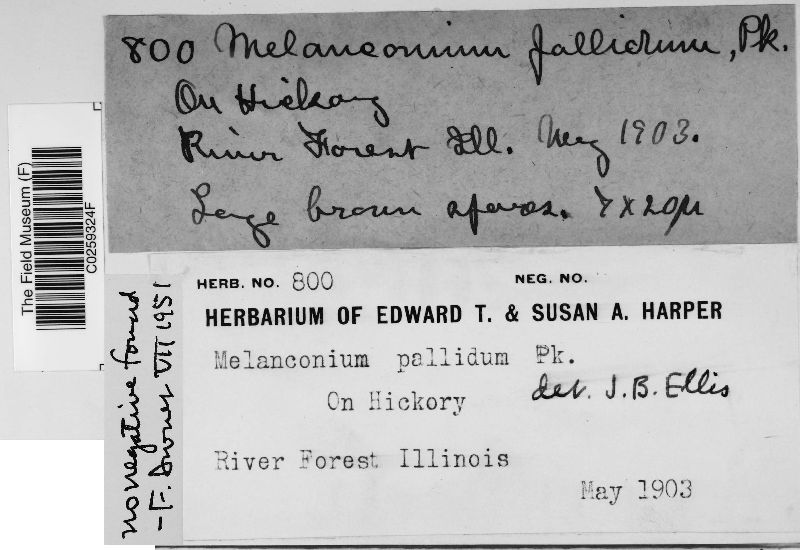 800 Melanconium pallidum, Pk.
On Hickory
River Forest Ill. May 1903.
Large brown spores. 7 x 20µ
The Field Museum (F)
C0259324F
HERB. NO. 800 NEG. NO.
HERBARIUM OF EDWARD T. & SUSAN A. HARPER
Melanconium pallidum Pk.
On Hickory det. J.B. Ellis
River Forest Illinois
May 1903
no negative found
- F. VII 1951